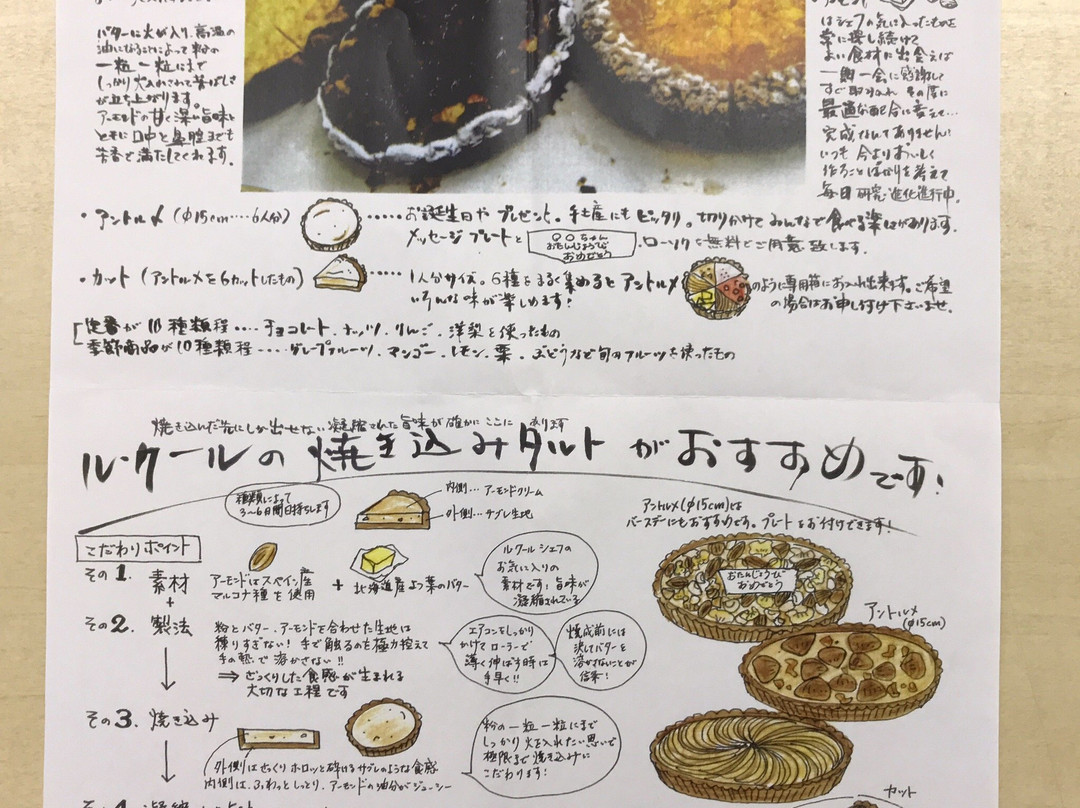 バターに火が入り、高温の
油になることによって粉の
一粒一粒にまで
しっかり火入れされて香ばしさ
が立ち上がります。
アーモンドの甘く深い旨味と
ともに口中と鼻腔までも
芳香で満たしてくれます。
はシェフの気に入ったものを
常に探し続けて
よい食材に出会えば
一期一会に感謝して
すぐ取り入れ その度に
最適な配合に変えて…
完成なんてありません!
いつも今よりおいしく
作ることばかりを考えて
毎日研究・進化進行中。
・アントルメ (Φ15cm‥‥6人分)
……お誕生日や プレゼント。手土産にもピッタリ。切りわけてみんなで食べる楽しさがあります。
メッセージプレートと
〇〇ちゃん
おたんじょうび
おめでとう
、ローソクも無料でご用意致します。
・カット (アントルメを6カットしたもの)
…… 1人分サイズ。6種をまるく集めるとアントルメ
のように専用箱にお入れ出来ます。ご希望
いろんな味が楽しめます!
の場合はお申し付け下さいませ。
定番が10種類程‥‥チョコレート、ナッツ、りんご、洋梨を使ったもの
季節商品が10種類程‥‥グレープフルーツ、マンゴー、レモン、栗、ぶどうなど旬のフルーツを使ったもの
焼き込んだ先にしか出せない凝縮された旨味が確かにここにあります
ル・クールの焼き込みタルトがおすすめです!
種類によって
3〜6日間日持ちします
内側… アーモンドクリーム
外側… サブレ生地
アントルメ(Φ15cm)は
バースデーにもおすすめです。プレートもお付けできます!
こだわりポイント
その1. 素材
アーモンドはスペイン産
マルコナ種を使用
+
北海道産よつ葉のバター
ル・クール シェフの
お気に入りの
素材です!旨味が
凝縮されている
おたんじょうび
おめでとう
+
その2. 製法
粉とバター、アーモンドを合わせた生地は
練りすぎない!手で触るのも極力控えて
手の熱で溶かさない!!
⇒ ざっくりした食感が生まれる
大切な工程です
エアコンをしっかり
かけてローラーで
薄く伸ばす時は
手早く!!
焼成前には
決してバターを
溶かさないことが
信条!
アントルメ
(Φ15cm)
その3. 焼き込み
外側はざっくりホロッと砕けるサブレのような食感
内側は、ふわっとしっとり、アーモンドの油分がジューシー
粉の一粒一粒にまで
しっかり火を入れたい思いで
極限まで焼き込みに
こだわります!
カット